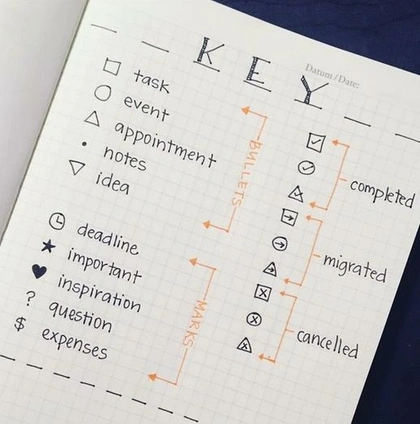 KEY
Datum/Date:
task
event
appointment
notes
idea
BULLETS
deadline
important
inspiration
? question
$ expenses
MARKS
completed
migrated
cancelled